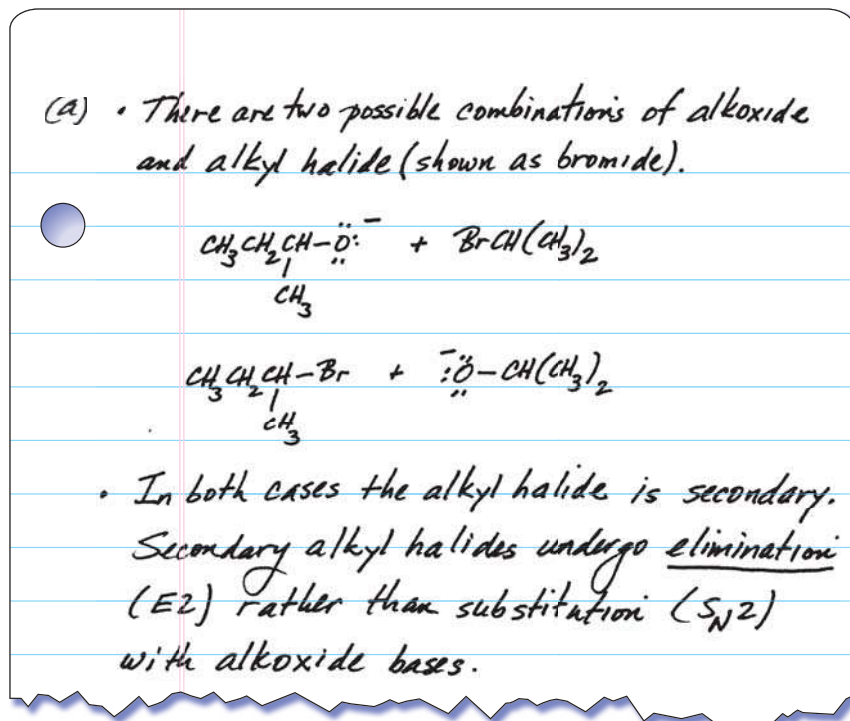 (a) • There are two possible combinations of alkoxide
and alkyl halide (shown as bromide).
CH₃CH₂CH–Ö:⁻ + BrCH(CH₃)₂
CH₃
CH₃CH₂CH–Br + ⁻:Ö–CH(CH₃)₂
CH₃
• In both cases the alkyl halide is secondary.
Secondary alkyl halides undergo elimination
(E2) rather than substitution (S_N2)
with alkoxide bases.